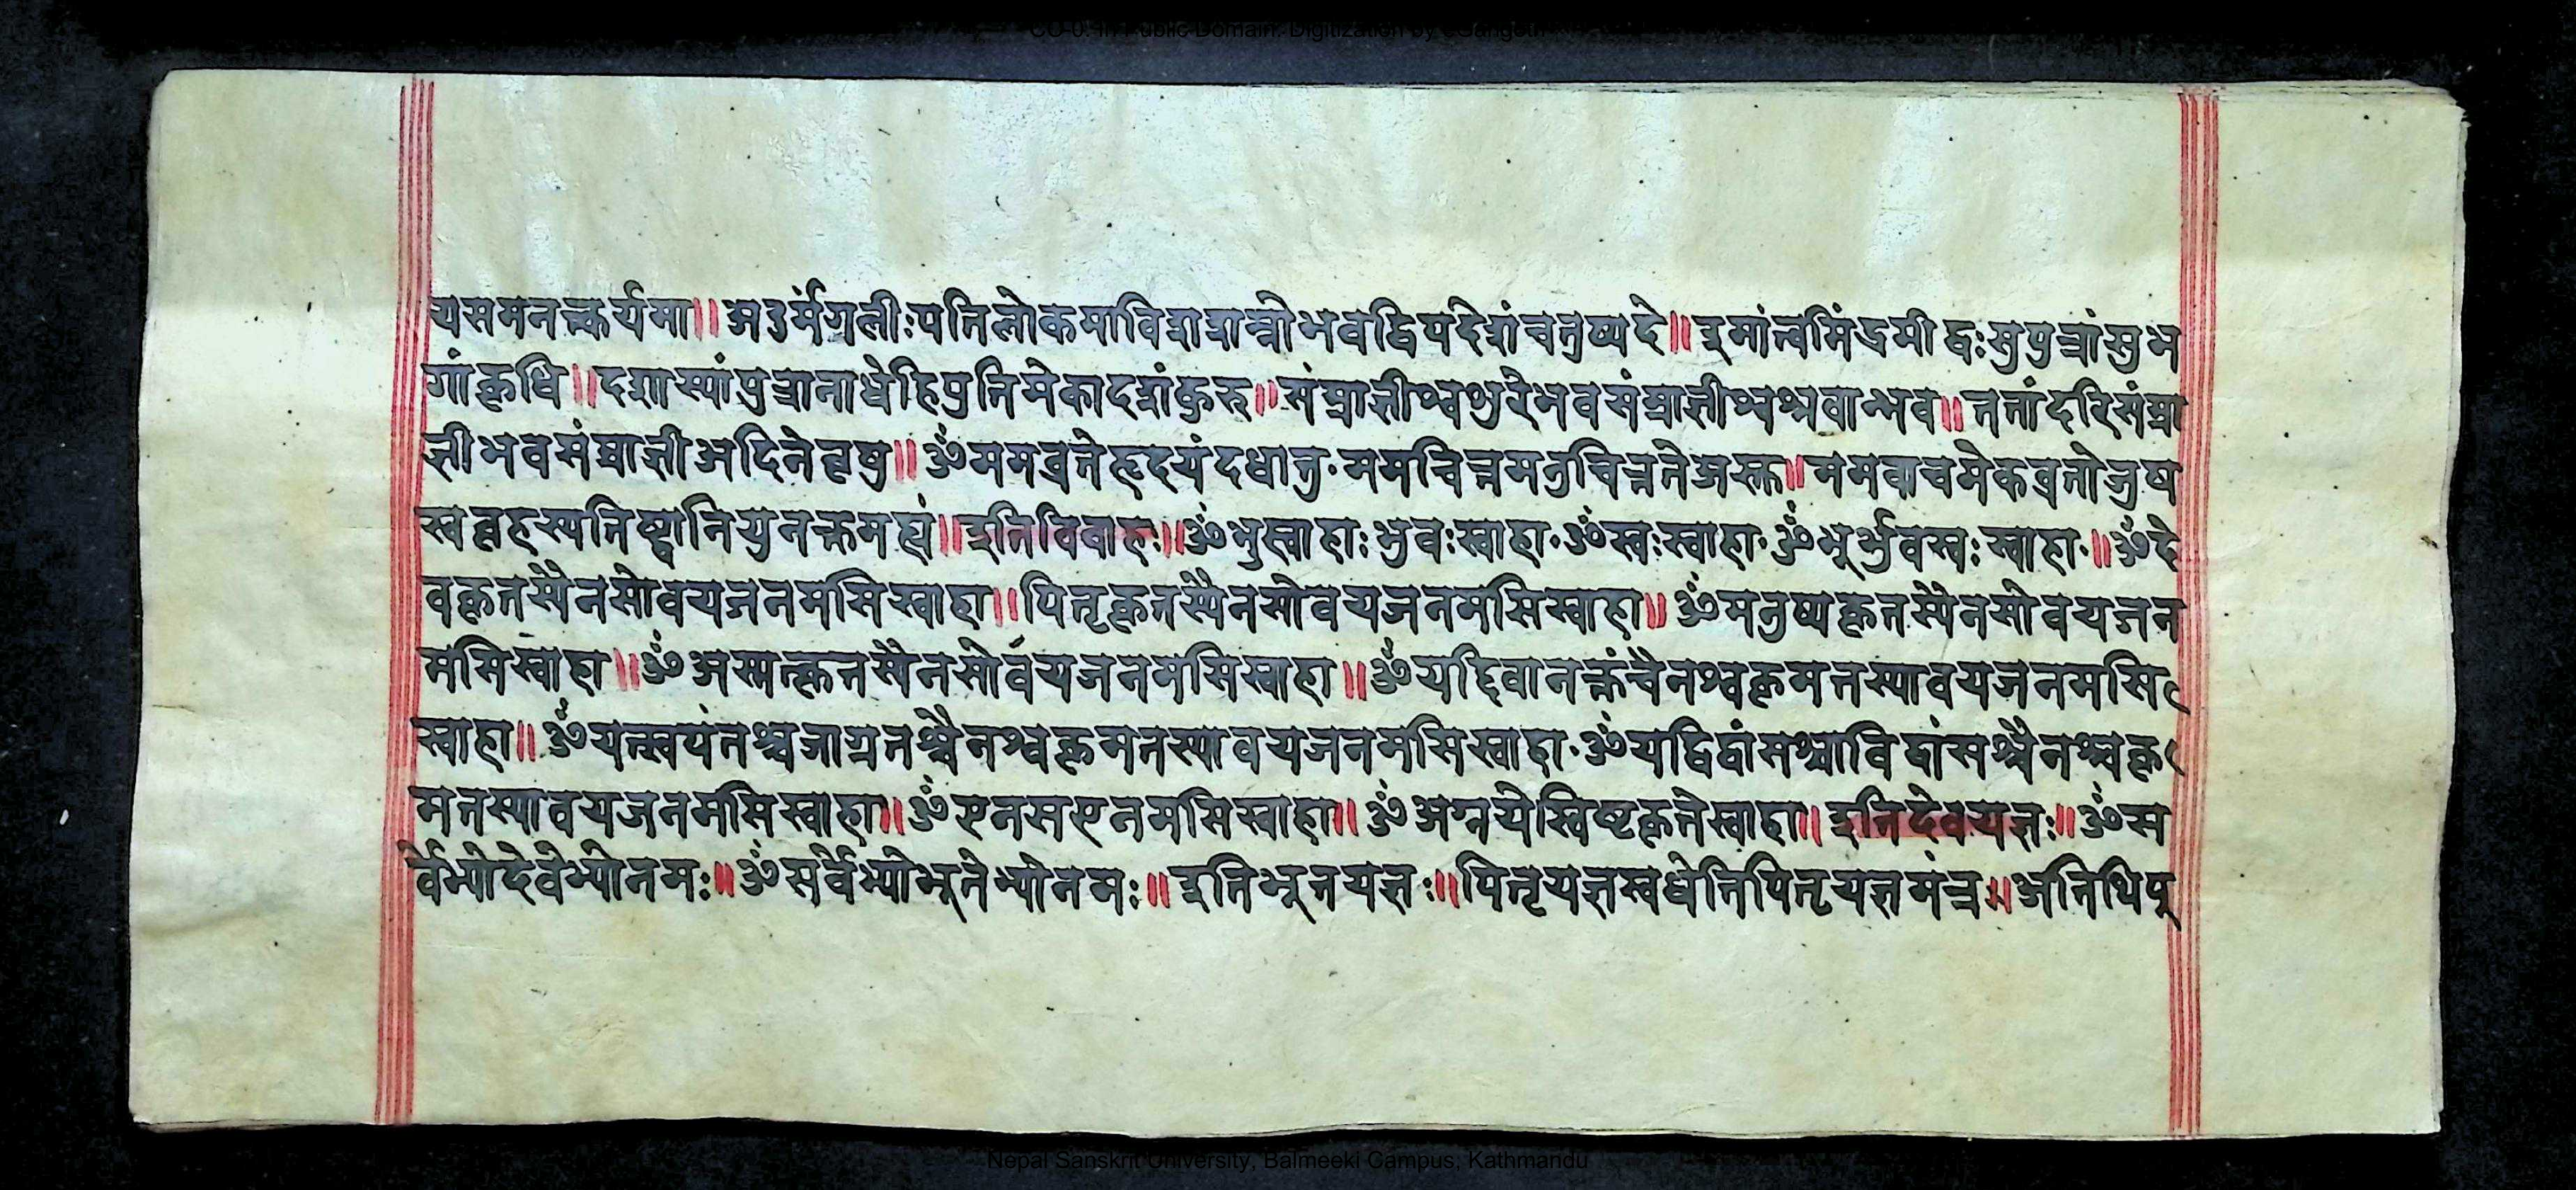 CC-0. In Public Domain. Digitization by eGangotri
यसमनत्क्तर्यमा॥अ३र्मंगलीःपतिलोकमाविशशन्नोभवद्विपदेशंचतुष्पदे॥इमांत्वमिंद्रमीढ्वःसुपुत्रांसुभ
गांकृधि॥दशास्यांपुत्रानाधेहिपुतिमेकादशंकुरु॥संम्राज्ञीश्वशुरेभवसंम्राज्ञीश्वश्रवाम्भव॥ननांदरिसंम्रा
ज्ञीभवसंम्राज्ञीअदितेवृषु॥ॐममव्रतेहृदयंदधातु॰ममचित्तमनुचित्तंतेअस्तु॥ममवाचमेकव्रतोजुष
स्वबृहस्पतिष्ट्वानियुनक्तमह्यं॥इतिविवाहः॥ॐभुस्वाहाःभुवःस्वाहा॰ॐस्वःस्वाहा॰ॐभूर्भुवस्वःस्वाहा॰॥ॐदे
वकृतस्यैनसोवयजनमसिस्वाहा॥पितृकृतस्यैनसोवयजनमसिस्वाहा॥ॐमनुष्यकृतस्यैनसोवयजन
मसिस्वाहा॥ॐअस्मत्कृतस्यैनसोर्वयजनमसिस्वाहा॥ॐयद्दिवानक्तंचैनश्चकृमतस्यावयजनमसि
स्वाहा॥ॐयत्स्वपंतश्चजाग्रतश्चैनश्चकृमतस्यावयजनमसिस्वाहा॰ॐयद्विद्वांसश्चाविद्वांसश्चैनश्चकृ
मतस्यावयजनमसिस्वाहा॥ॐएनसएनमसिस्वाहा॥ॐअग्नयेस्विष्टकृतेस्वाहा॥इतिदेवयज्ञः॥ॐस
र्वेभ्योदेवेभ्योनमः॥ॐसर्वेभ्योभूतेभ्योनमः॥इतिभूतयज्ञः॥पितृयज्ञस्वधेतिपितृयज्ञमंत्र॥अतिथिपू
Nepal Sanskrit University, Balmeeki Campus, Kathmandu